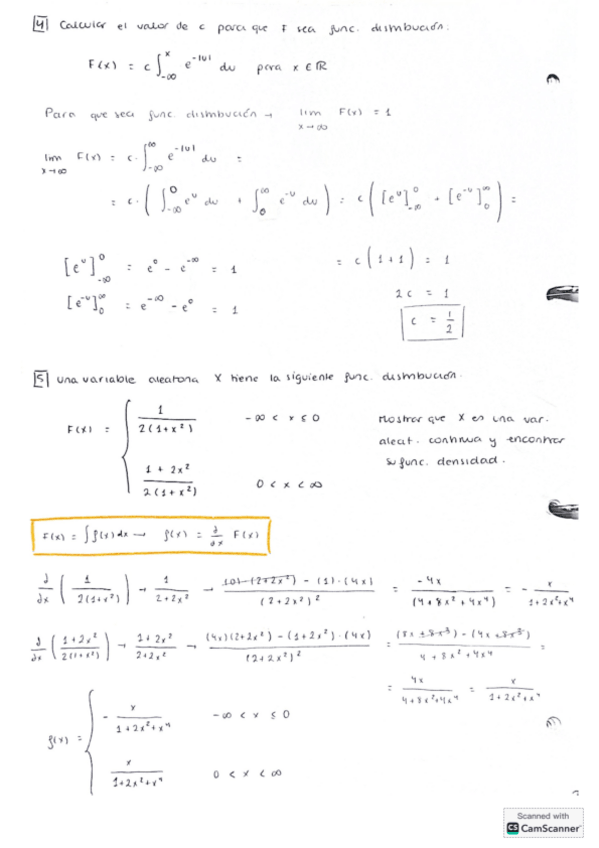 4 Calcular el valor de c para que F sea func. distribución.
F(x) = c ∫_{-∞}^{x} e^{-|u|} du para x ∈ ℝ
Para que sea func. distribución → lim_{x→∞} F(x) = 1
lim_{x→∞} F(x) = c · ∫_{-∞}^{∞} e^{-|u|} du =
= c · ( ∫_{-∞}^{0} e^{u} du + ∫_{0}^{∞} e^{-u} du ) = c ( [e^{u}]_{-∞}^{0} + [e^{-u}]_{0}^{∞} ) =
[e^{u}]_{-∞}^{0} = e^{0} - e^{-∞} = 1
= c (1+1) = 1
[e^{-u}]_{0}^{∞} = e^{-∞} - e^{0} = 1
2c = 1
c = 1/2
5 Una variable aleatoria X tiene la siguiente func. distribución.
F(x) = { 1 / 2(1+x²) -∞ < x ≤ 0
1 + 2x² / 2(1+x²) 0 < x < ∞
Mostrar que X es una var.
aleat. continua y encontrar
su func. densidad.
F(x) = ∫ f(x) dx → f(x) = ∂/∂x F(x)
∂/∂x ( 1 / 2(1+x²) ) → 1 / 2+2x² → (0)·(2+2x²) - (1)·(4x) / (2+2x²)² = -4x / (4+8x²+4x⁴) = - x / 1+2x²+x⁴
∂/∂x ( 1+2x² / 2(1+x²) ) → 1+2x² / 2+2x² → (4x)(2+2x²) - (1+2x²)·(4x) / (2+2x²)² = (8x+8x³) - (4x+8x³) / 4+8x²+4x⁴ =
= 4x / 4+8x²+4x⁴ = x / 1+2x²+x⁴
f(x) = { - x / 1+2x²+x⁴ -∞ < x ≤ 0
x / 1+2x²+x⁴ 0 < x < ∞
Scanned with
CS CamScanner